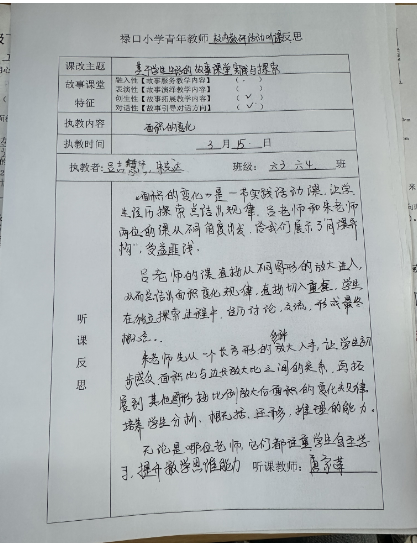 禄口小学青年教师 校内教研活动听课反思
课改主题 基于学生立场的故事课堂实践与探索
故事课堂特征
融入性【故事服务教学内容】 ( )
表演性【故事演绎教学内容】 ( )
创生性【故事拓展教学内容】 ( ✓ )
对话性【故事引导对话方向】 ( ✓ )
执教内容 面积的变化
执教时间 3 月 15 日
执教者: 班级: 六3 六4 班
听课反思
《面积的变化》是一节实践活动课,让学
生经历探索总结出规律,吕老师和朱老师
两位的课从不同角度出发,给我们展示了“同课异
构”,受益匪浅。
吕老师的课直接从不同图形的放大进入,
从而总结出面积变化规律,直接切入重点,学生
在独立探索过程中,经历讨论、交流,形成最终
概念。
朱老师先从一个长方形的放大入手,让学生初
步感受面积比与边长放大比之间的关系,再拓
展到其他图形按比例放大后面积的变化及规律,
培养学生分析、概括、迁移、推理的能力。
无论是哪位老师,它们都注重学生自主学
习,提升数学思维能力 听课教师: